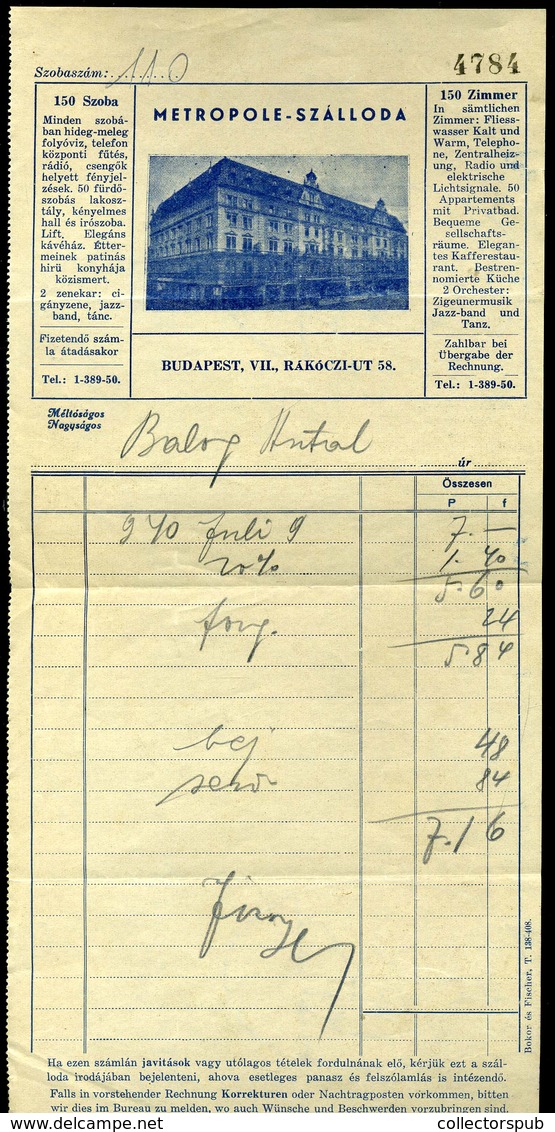 Szobaszám: 110
4784
150 Szoba
Minden szobá-
ban hideg-meleg
folyóviz, telefon
központi fűtés,
rádió, csengők
helyett fényjel-
zések. 50 fürdő-
szobás lakosz-
tály, kényelmes
hall és irószoba.
Lift. Elegáns
kávéház. Étter-
meinek patinás
hirü konyhája
közismert.
2 zenekar: ci-
gányzene, jazz-
band, tánc.
Fizetendő szám-
la átadásakor
Tel.: 1-389-50.
METROPOLE-SZÁLLODA
BUDAPEST, VII., RÁKÓCZI-UT 58.
150 Zimmer
In sämtlichen
Zimmer: Fliess-
wasser Kalt und
Warm, Telepho-
ne, Zentralheiz-
ung, Radio und
elektrische
Lichtsignale. 50
Appartements
mit Privatbad.
Bequeme Ge-
sellschafts-
räume. Elegan-
tes Kafferestau-
rant. Bestren-
nomierte Küche
2 Orchester:
Zigeunermusik
Jazz-band und
Tanz.
Zahlbar bei
Übergabe der
Rechnung.
Tel.: 1-389-50.
Méltóságos
Nagyságos
Balog Antal
úr
Összesen
P f
940 Juli 9 7.—
20% 1.40
5.60
forg. 24
5.84
48
84
7.16
Bokor és Fischer, T. 138-408.
Ha ezen számlán javitások vagy utólagos tételek fordulnának elő, kérjük ezt a szál-
loda irodájában bejelenteni, ahova esetleges panasz és felszólamlás is intézendő.
Falls in vorstehender Rechnung Korrekturen oder Nachtragposten vorkommen, bitten
wir dies im Bureau zu melden, wo auch Wünsche und Beschwerden vorzubringen sind.
delcampe.net
collectorspub